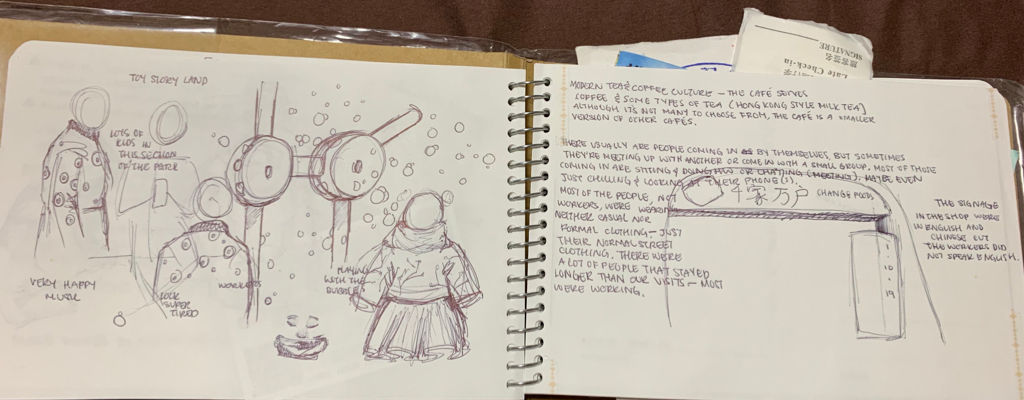 TOY STORY LAND
LOTS OF
KIDS IN
THIS SECTION
OF THE PARK
VERY HAPPY
MUSIC
LOOK
SUPER
TIRED
WORKERS
PLAYING
WITH THE
BUBBLES
SIGNATURE
Late Check-in
MODERN TEA & COFFEE CULTURE – THE CAFÉ SERVES
COFFEE & SOME TYPES OF TEA (HONG KONG STYLE MILK TEA)
ALTHOUGH IT'S NOT MANY TO CHOOSE FROM, THE CAFÉ IS A SMALLER
VERSION OF OTHER CAFÉS.
THERE USUALLY ARE PEOPLE COMING IN BY THEMSELVES, BUT SOMETIMES
THEY'RE MEETING UP WITH ANOTHER OR COME IN WITH A SMALL GROUP. MOST OF THOSE
COMING IN ARE SITTING & DOING OR CHATTING (MEETING), MAYBE EVEN
JUST CHILLING & LOOKING AT THEIR PHONE(S).
MOST OF THE PEOPLE, NOT
WORKERS, WERE WEARING
NEITHER CASUAL NOR
FORMAL CLOTHING – JUST
THEIR NORMAL STREET
CLOTHING. THERE WERE
A LOT OF PEOPLE THAT STAYED
LONGER THAN OUR VISITS – MOST
WERE WORKING.
千家万户 CHANGE FOODS
1
10
19
THE SIGNAGE
IN THE SHOP WERE
IN ENGLISH AND
CHINESE BUT
THE WORKERS DID
NOT SPEAK ENGLISH.